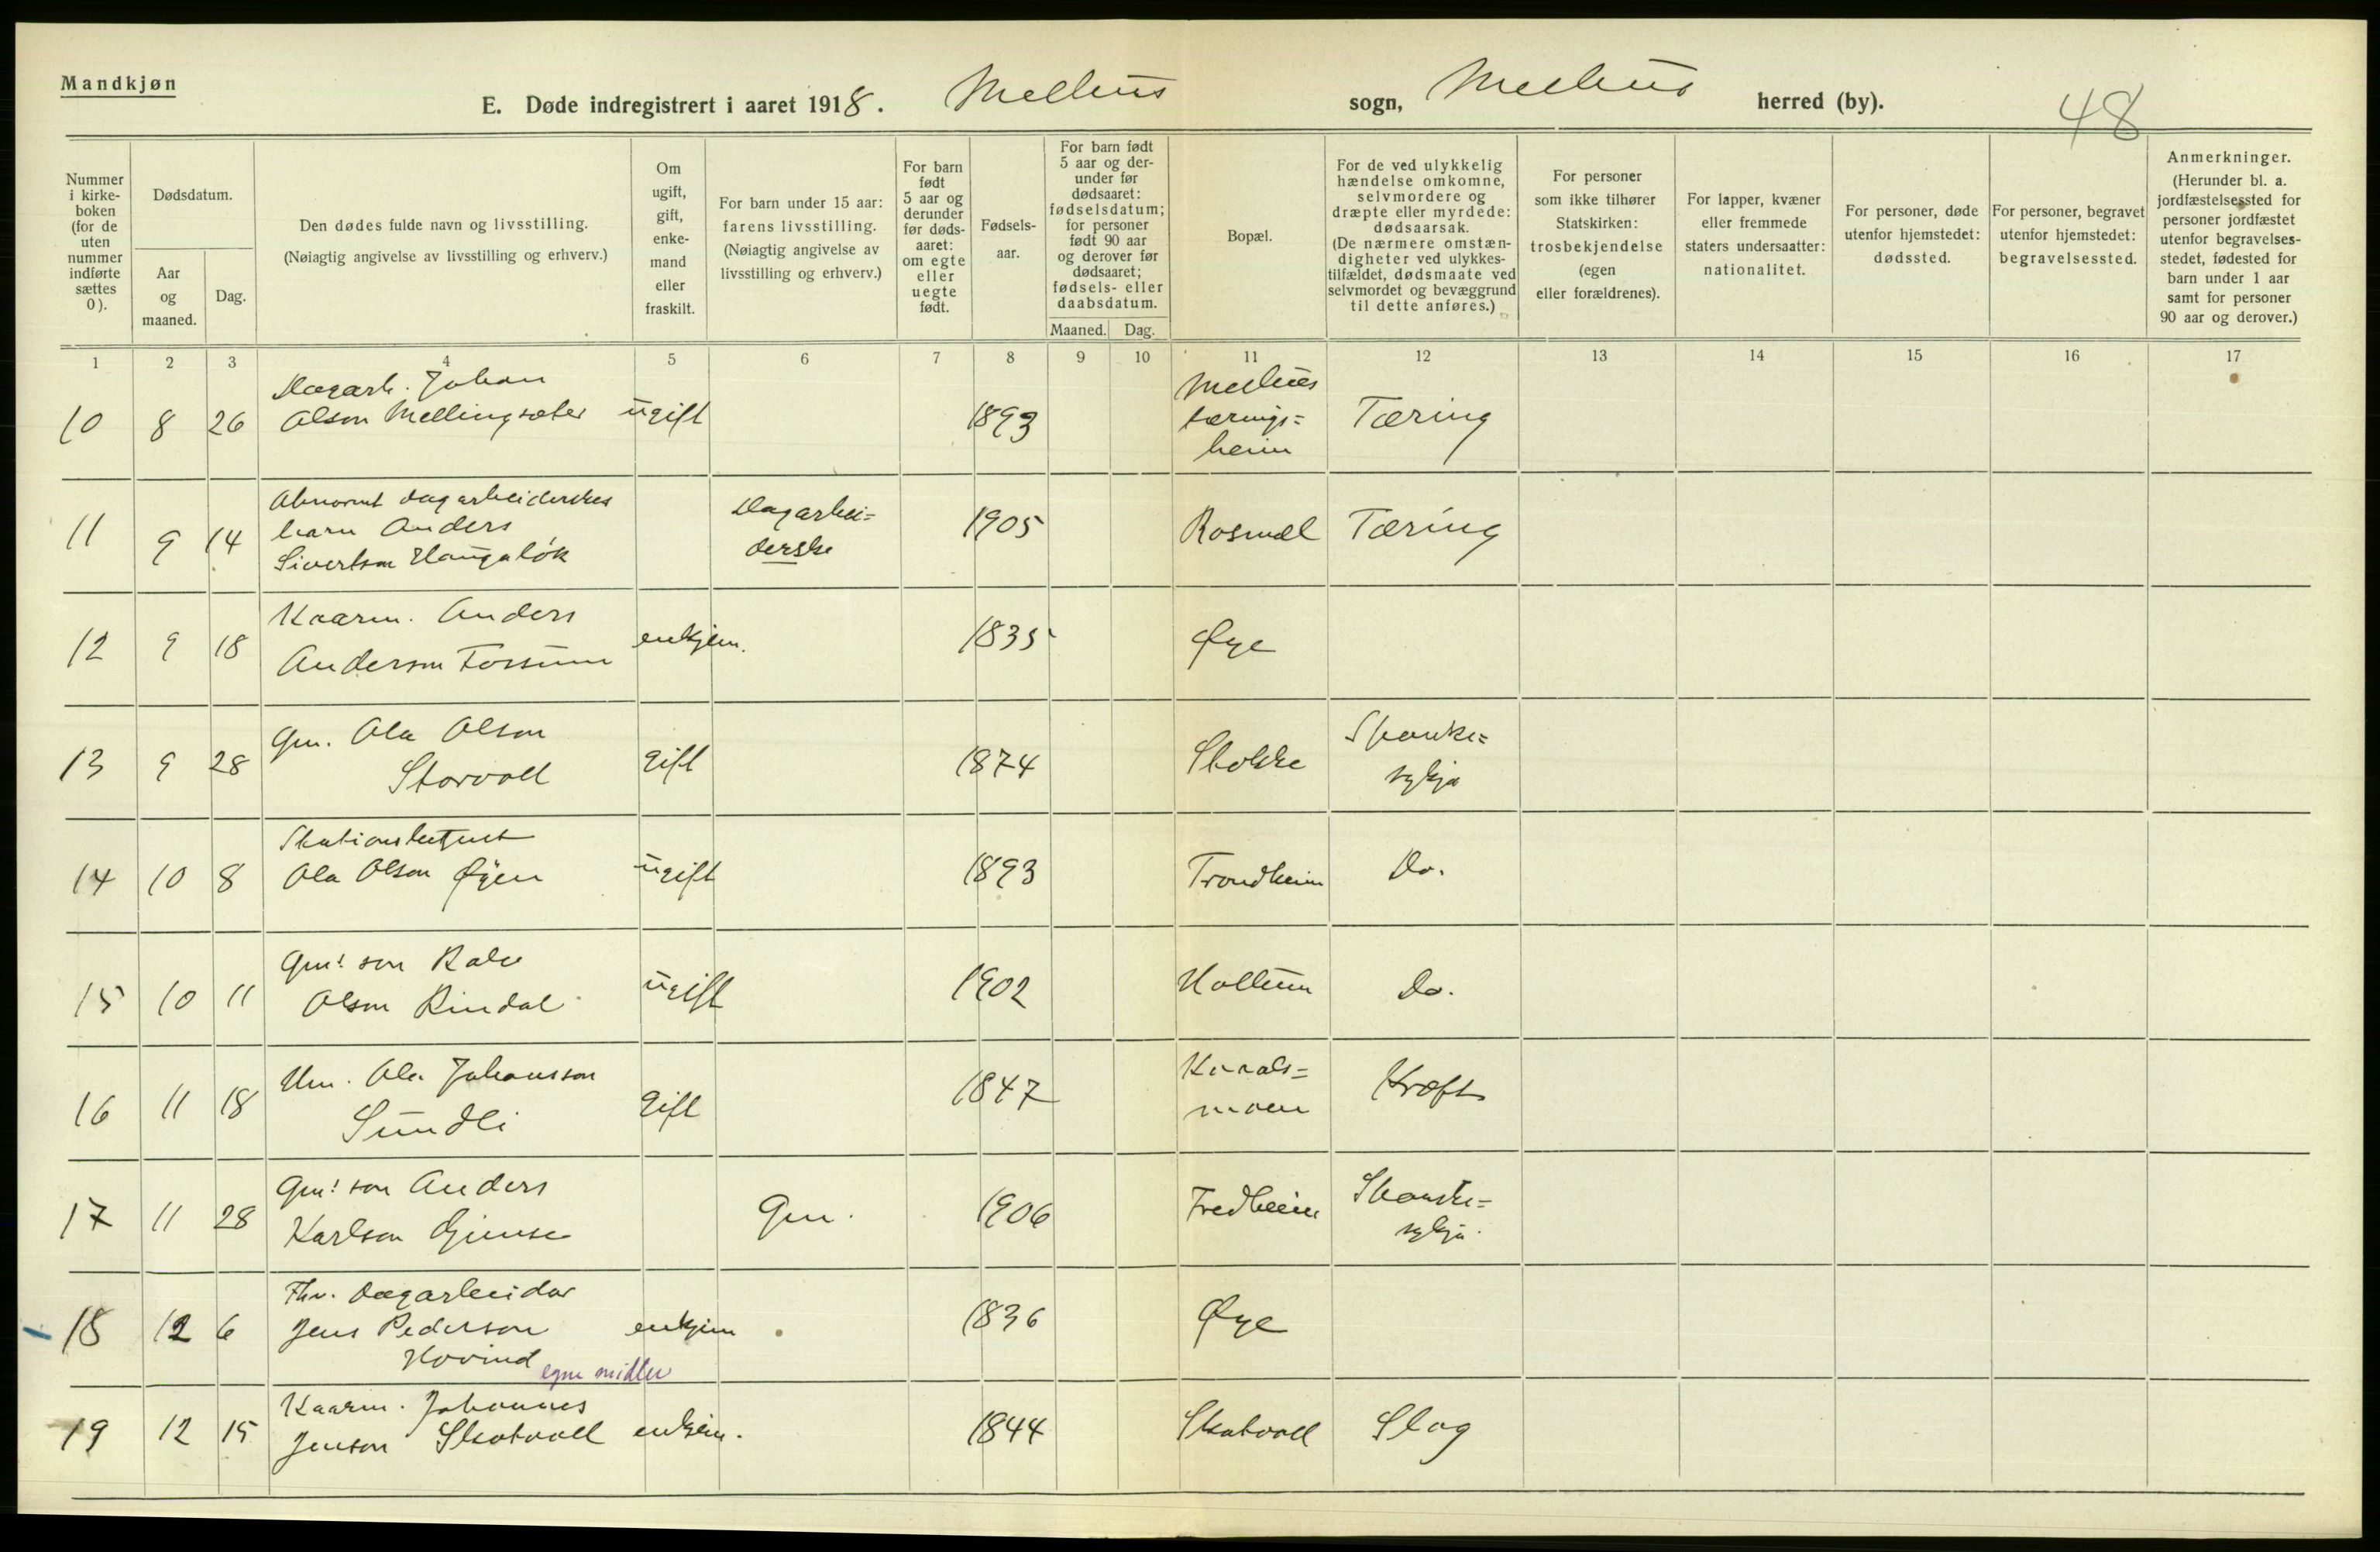 Mandkjøn
E. Døde indregistrert i aaret 1918. Melhus sogn, Melhus herred (by).
48
Nummer i kirke- boken (for de uten nummer indførte sættes 0).
Dødsdatum.
Aar og maaned.
Dag.
Den dødes fulde navn og livsstilling.
(Nøiagtig angivelse av livsstilling og erhverv.)
Om ugift, gift, enke- mand eller fraskilt.
For barn under 15 aar: farens livsstilling.
(Nøiagtig angivelse av livsstilling og erhverv.)
For barn født 5 aar og derunder før døds- aaret: om egte eller uegte født.
Fødsels- aar.
For barn født 5 aar og der- under før dødsaaret: fødselsdatum; for personer født 90 aar og derover før dødsaaret; fødsels- eller daabsdatum.
Maaned. Dag.
Bopæl.
For de ved ulykkelig hændelse omkomne, selvmordere og dræpte eller myrdede: dødsaarsak.
(De nærmere omstæn- digheter ved ulykkes- tilfældet, dødsmaate ved selvmordet og bevæggrund til dette anføres.)
For personer som ikke tilhører Statskirken: trosbekjendelse (egen eller forældrenes).
For lapper, kvæner eller fremmede staters undersaatter: nationalitet.
For personer, døde utenfor hjemstedet: dødssted.
For personer, begravet utenfor hjemstedet: begravelsessted.
Anmerkninger.
(Herunder bl. a. jordfæstelsessted for personer jordfæstet utenfor begravelses- stedet, fødested for barn under 1 aar samt for personer 90 aar og derover.)
1 2 3 4 5 6 7 8 9 10 11 12 13 14 15 16 17
Dagarb. Johan Melhus
10 8 26 Olson Mellingsæter ugift 1893 tærings= Tæring
heim
Abnormt dagarbeiderskes Dagarbei=
11 9 14 barn Anders derske 1905 Rosmæl Tæring
Sivertson Haugaløk
Kaarm. Anders
12 9 18 Anderson Fossum enkjem. 1835 Øye
Gm. Ola Olson Spanske=
13 9 28 Storvoll gift 1874 sykja
Stationsbetjent
14 10 8 Ola Olson Øyen ugift 1893 Trondheim Do.
Gm! son
15 10 11 Olson Rindal ugift 1902 Hollum Do.
Hm. Ola Johansson Kvaals=
16 11 18 Sundli gift 1847 moen Kræft
Gm! son Anders Spanske=
17 11 28 Karlson Gimse Gm. 1906 Fredheim sykja.
Fhv. dagarbeidar
18 12 6 Jens Pederson enkjem 1836 Øye
Hovind egne midler
Kaarm. Johannes
19 12 15 Jenson Skatvoll enkjem. 1844 Skatvoll Slag